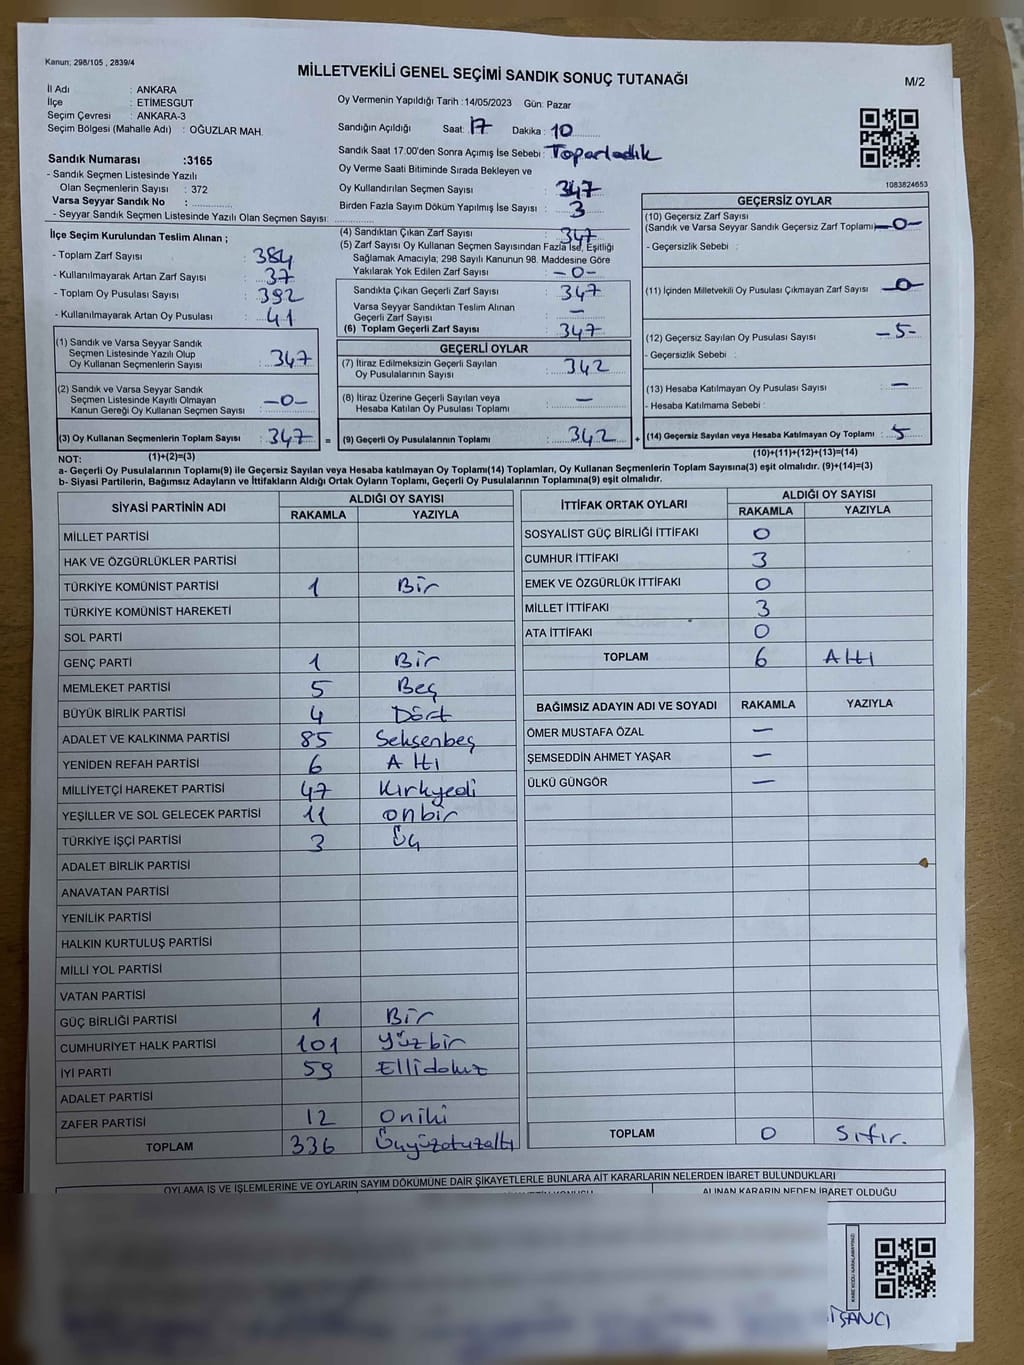 Kanun; 298/105 , 2839/4
MİLLETVEKİLİ GENEL SEÇİMİ SANDIK SONUÇ TUTANAĞI
M/2
İl Adı : ANKARA
İlçe : ETİMESGUT
Seçim Çevresi : ANKARA-3
Seçim Bölgesi (Mahalle Adı) : OĞUZLAR MAH.
Sandık Numarası :3165
- Sandık Seçmen Listesinde Yazılı
Olan Seçmenlerin Sayısı : 372
Varsa Seyyar Sandık No :
- Seyyar Sandık Seçmen Listesinde Yazılı Olan Seçmen Sayısı:
Oy Vermenin Yapıldığı Tarih :14/05/2023 Gün: Pazar
Sandığın Açıldığı Saat: 17 Dakika : 10
Sandık Saat 17:00'den Sonra Açımış İse Sebebi : Toparladık
Oy Verme Saati Bitiminde Sırada Bekleyen ve
Oy Kullandırılan Seçmen Sayısı : 347
Birden Fazla Sayım Döküm Yapılmış İse Sayısı : 3
1083824653
İlçe Seçim Kurulundan Teslim Alınan ;
- Toplam Zarf Sayısı : 384
- Kullanılmayarak Artan Zarf Sayısı : 37
- Toplam Oy Pusulası Sayısı : 392
- Kullanılmayarak Artan Oy Pusulası : 41
(1) Sandık ve Varsa Seyyar Sandık
Seçmen Listesinde Yazılı Olup
Oy Kullanan Seçmenlerin Sayısı : 347
(2) Sandık ve Varsa Seyyar Sandık
Seçmen Listesinde Kayıtlı Olmayan
Kanun Gereği Oy Kullanan Seçmen Sayısı : -0-
(3) Oy Kullanan Seçmenlerin Toplam Sayısı : 347 =
(4) Sandıktan Çıkan Zarf Sayısı : 347
(5) Zarf Sayısı Oy Kullanan Seçmen Sayısından Fazla İse, Eşitliği
Sağlamak Amacıyla; 298 Sayılı Kanunun 98. Maddesine Göre
Yakılarak Yok Edilen Zarf Sayısı : -0-
Sandıkta Çıkan Geçerli Zarf Sayısı : 347
Varsa Seyyar Sandıktan Teslim Alınan
Geçerli Zarf Sayısı : -
(6) Toplam Geçerli Zarf Sayısı : 347
GEÇERLİ OYLAR
(7) İtiraz Edilmeksizin Geçerli Sayılan
Oy Pusulalarının Sayısı : 342
(8) İtiraz Üzerine Geçerli Sayılan veya
Hesaba Katılan Oy Pusulası Toplamı : -
(9) Geçerli Oy Pusulalarının Toplamı : 342 +
GEÇERSİZ OYLAR
(10) Geçersiz Zarf Sayısı
(Sandık ve Varsa Seyyar Sandık Geçersiz Zarf Toplamı) -0-
- Geçersizlik Sebebi :
(11) İçinden Milletvekili Oy Pusulası Çıkmayan Zarf Sayısı -0-
(12) Geçersiz Sayılan Oy Pusulası Sayısı : -5-
- Geçersizlik Sebebi :
(13) Hesaba Katılmayan Oy Pusulası Sayısı : -
- Hesaba Katılmama Sebebi :
(14) Geçersiz Sayılan veya Hesaba Katılmayan Oy Toplamı : 5
NOT: (1)+(2)=(3)
(10)+(11)+(12)+(13)=(14)
a- Geçerli Oy Pusulalarının Toplamı(9) ile Geçersiz Sayılan veya Hesaba katılmayan Oy Toplamı(14) Toplamları, Oy Kullanan Seçmenlerin Toplam Sayısına(3) eşit olmalıdır. (9)+(14)=(3)
b- Siyasi Partilerin, Bağımsız Adayların ve İttifakların Aldığı Ortak Oyların Toplamı, Geçerli Oy Pusulalarının Toplamına(9) eşit olmalıdır.
SİYASİ PARTİNİN ADI ALDIĞI OY SAYISI
RAKAMLA YAZIYLA
MİLLET PARTİSİ
HAK VE ÖZGÜRLÜKLER PARTİSİ
TÜRKİYE KOMÜNİST PARTİSİ 1 Bir
TÜRKİYE KOMÜNİST HAREKETİ
SOL PARTİ
GENÇ PARTİ 1 Bir
MEMLEKET PARTİSİ 5 Beş
BÜYÜK BİRLİK PARTİSİ 4 Dört
ADALET VE KALKINMA PARTİSİ 85 Seksenbeş
YENİDEN REFAH PARTİSİ 6 Altı
MİLLİYETÇİ HAREKET PARTİSİ 47 Kırkyedi
YEŞİLLER VE SOL GELECEK PARTİSİ 11 onbir
TÜRKİYE İŞÇİ PARTİSİ 3 Üç
ADALET BİRLİK PARTİSİ
ANAVATAN PARTİSİ
YENİLİK PARTİSİ
HALKIN KURTULUŞ PARTİSİ
MİLLİ YOL PARTİSİ
VATAN PARTİSİ
GÜÇ BİRLİĞİ PARTİSİ 1 Bir
CUMHURİYET HALK PARTİSİ 101 Yüzbir
İYİ PARTİ 59 Ellidokuz
ADALET PARTİSİ
ZAFER PARTİSİ 12 Oniki
TOPLAM 336 Üçyüzotuzaltı
İTTİFAK ORTAK OYLARI ALDIĞI OY SAYISI
RAKAMLA YAZIYLA
SOSYALİST GÜÇ BİRLİĞİ İTTİFAKI 0
CUMHUR İTTİFAKI 3
EMEK VE ÖZGÜRLÜK İTTİFAKI 0
MİLLET İTTİFAKI 3
ATA İTTİFAKI 0
TOPLAM 6 Altı
BAĞIMSIZ ADAYIN ADI VE SOYADI RAKAMLA YAZIYLA
ÖMER MUSTAFA ÖZAL -
ŞEMSEDDİN AHMET YAŞAR -
ÜLKÜ GÜNGÖR -
TOPLAM 0 Sıfır.
OYLAMA İŞ VE İŞLEMLERİNE VE OYLARIN SAYIM DÖKÜMÜNE DAİR ŞİKAYETLERLE BUNLARA AİT KARARLARIN NELERDEN İBARET BULUNDUKLARI
ALINAN KARARIN NEDEN İBARET OLDUĞU
KARE KODU KARALAMAYINIZ